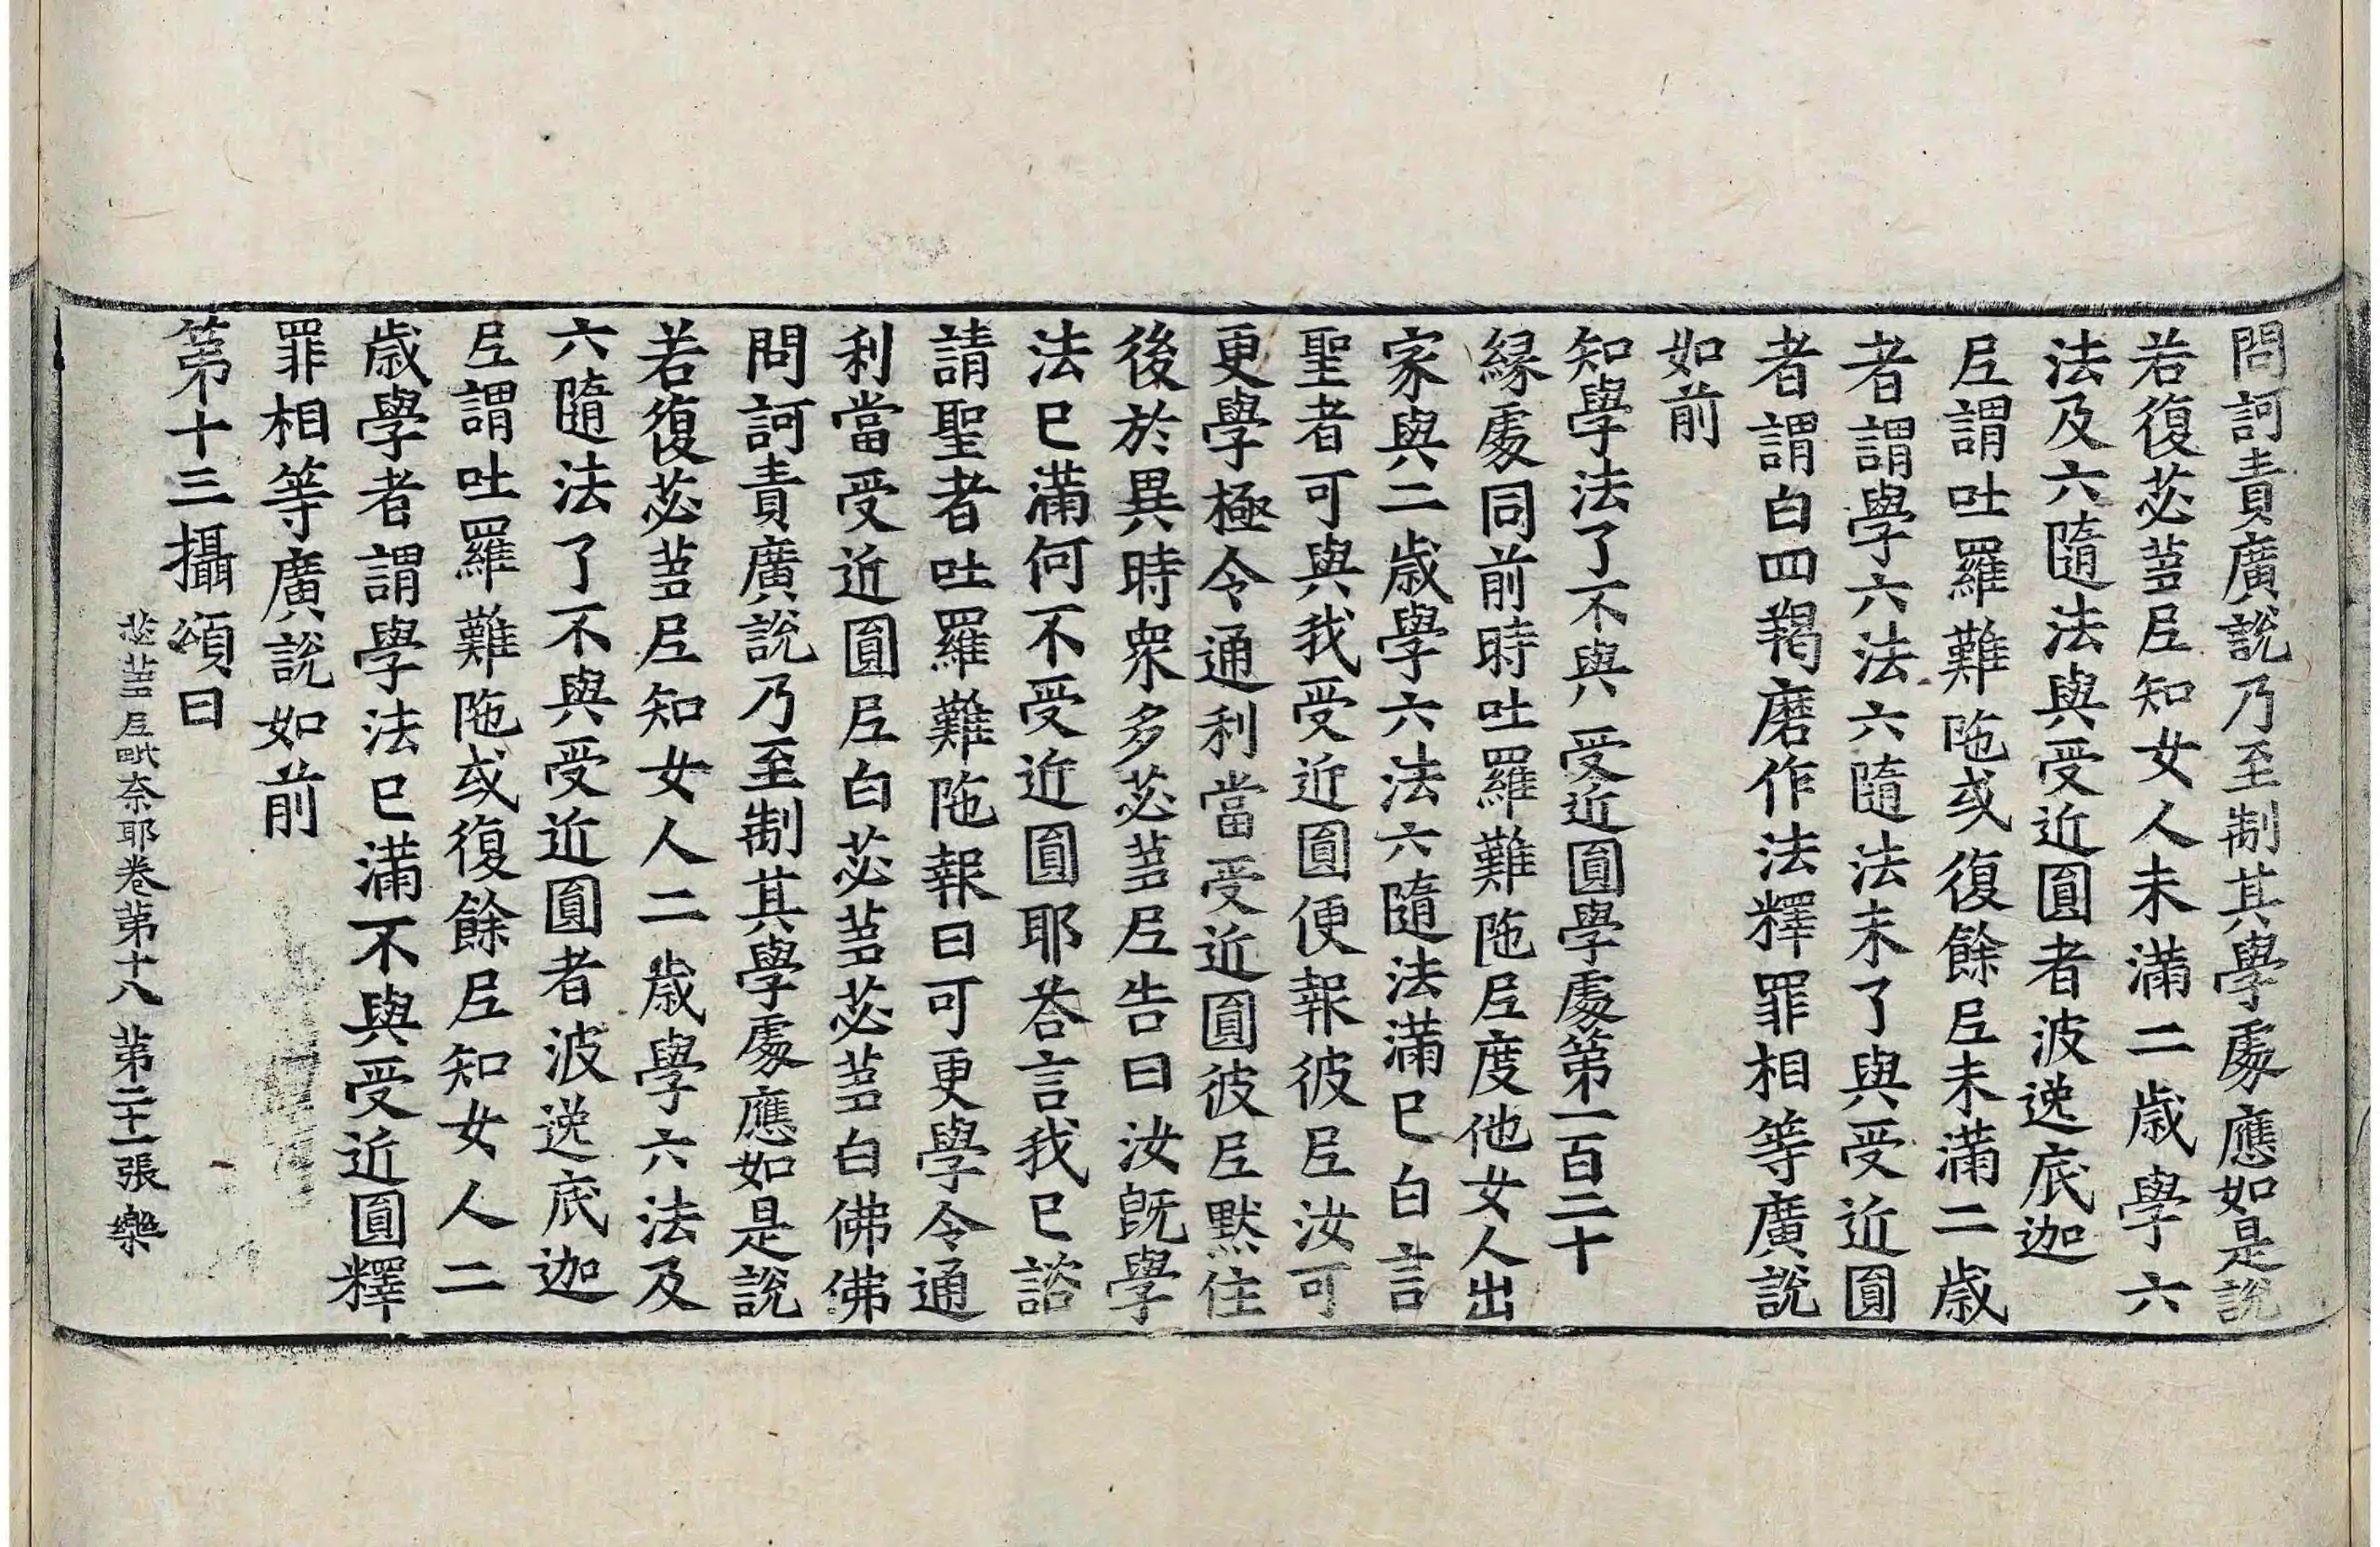 問訶責廣說乃至制其學處應如是說
若復苾蒭尼知女人未滿二歲學六
法及六隨法與受近圓者波逸底迦
尼謂吐羅難陁或復餘尼未滿二歲
者謂學六法六隨法未了與受近圓
者謂白四羯磨作法釋罪相等廣說
如前
知學法了不與受近圓學處第一百二十
緣處同前時吐羅難陁尼度他女人出
家與二歲學六法六隨法滿已白言
聖者可與我受近圓便報彼尼汝可
更學極令通利當受近圓彼尼默住
後於異時衆多苾蒭尼告曰汝旣學
法已滿何不受近圓耶荅言我已諮
請聖者吐羅難陁報曰可更學令通
利當受近圓尼白苾蒭苾蒭白佛佛
問訶責廣說乃至制其學處應如是說
若復苾蒭尼知女人二歲學六法及
六隨法了不與受近圓者波逸底迦
尼謂吐羅難陁或復餘尼知女人二
歲學者謂學法已滿不與受近圓釋
罪相等廣說如前
第十三攝頌曰
苾蒭尼毗奈耶卷第十八 第二十一張 樂